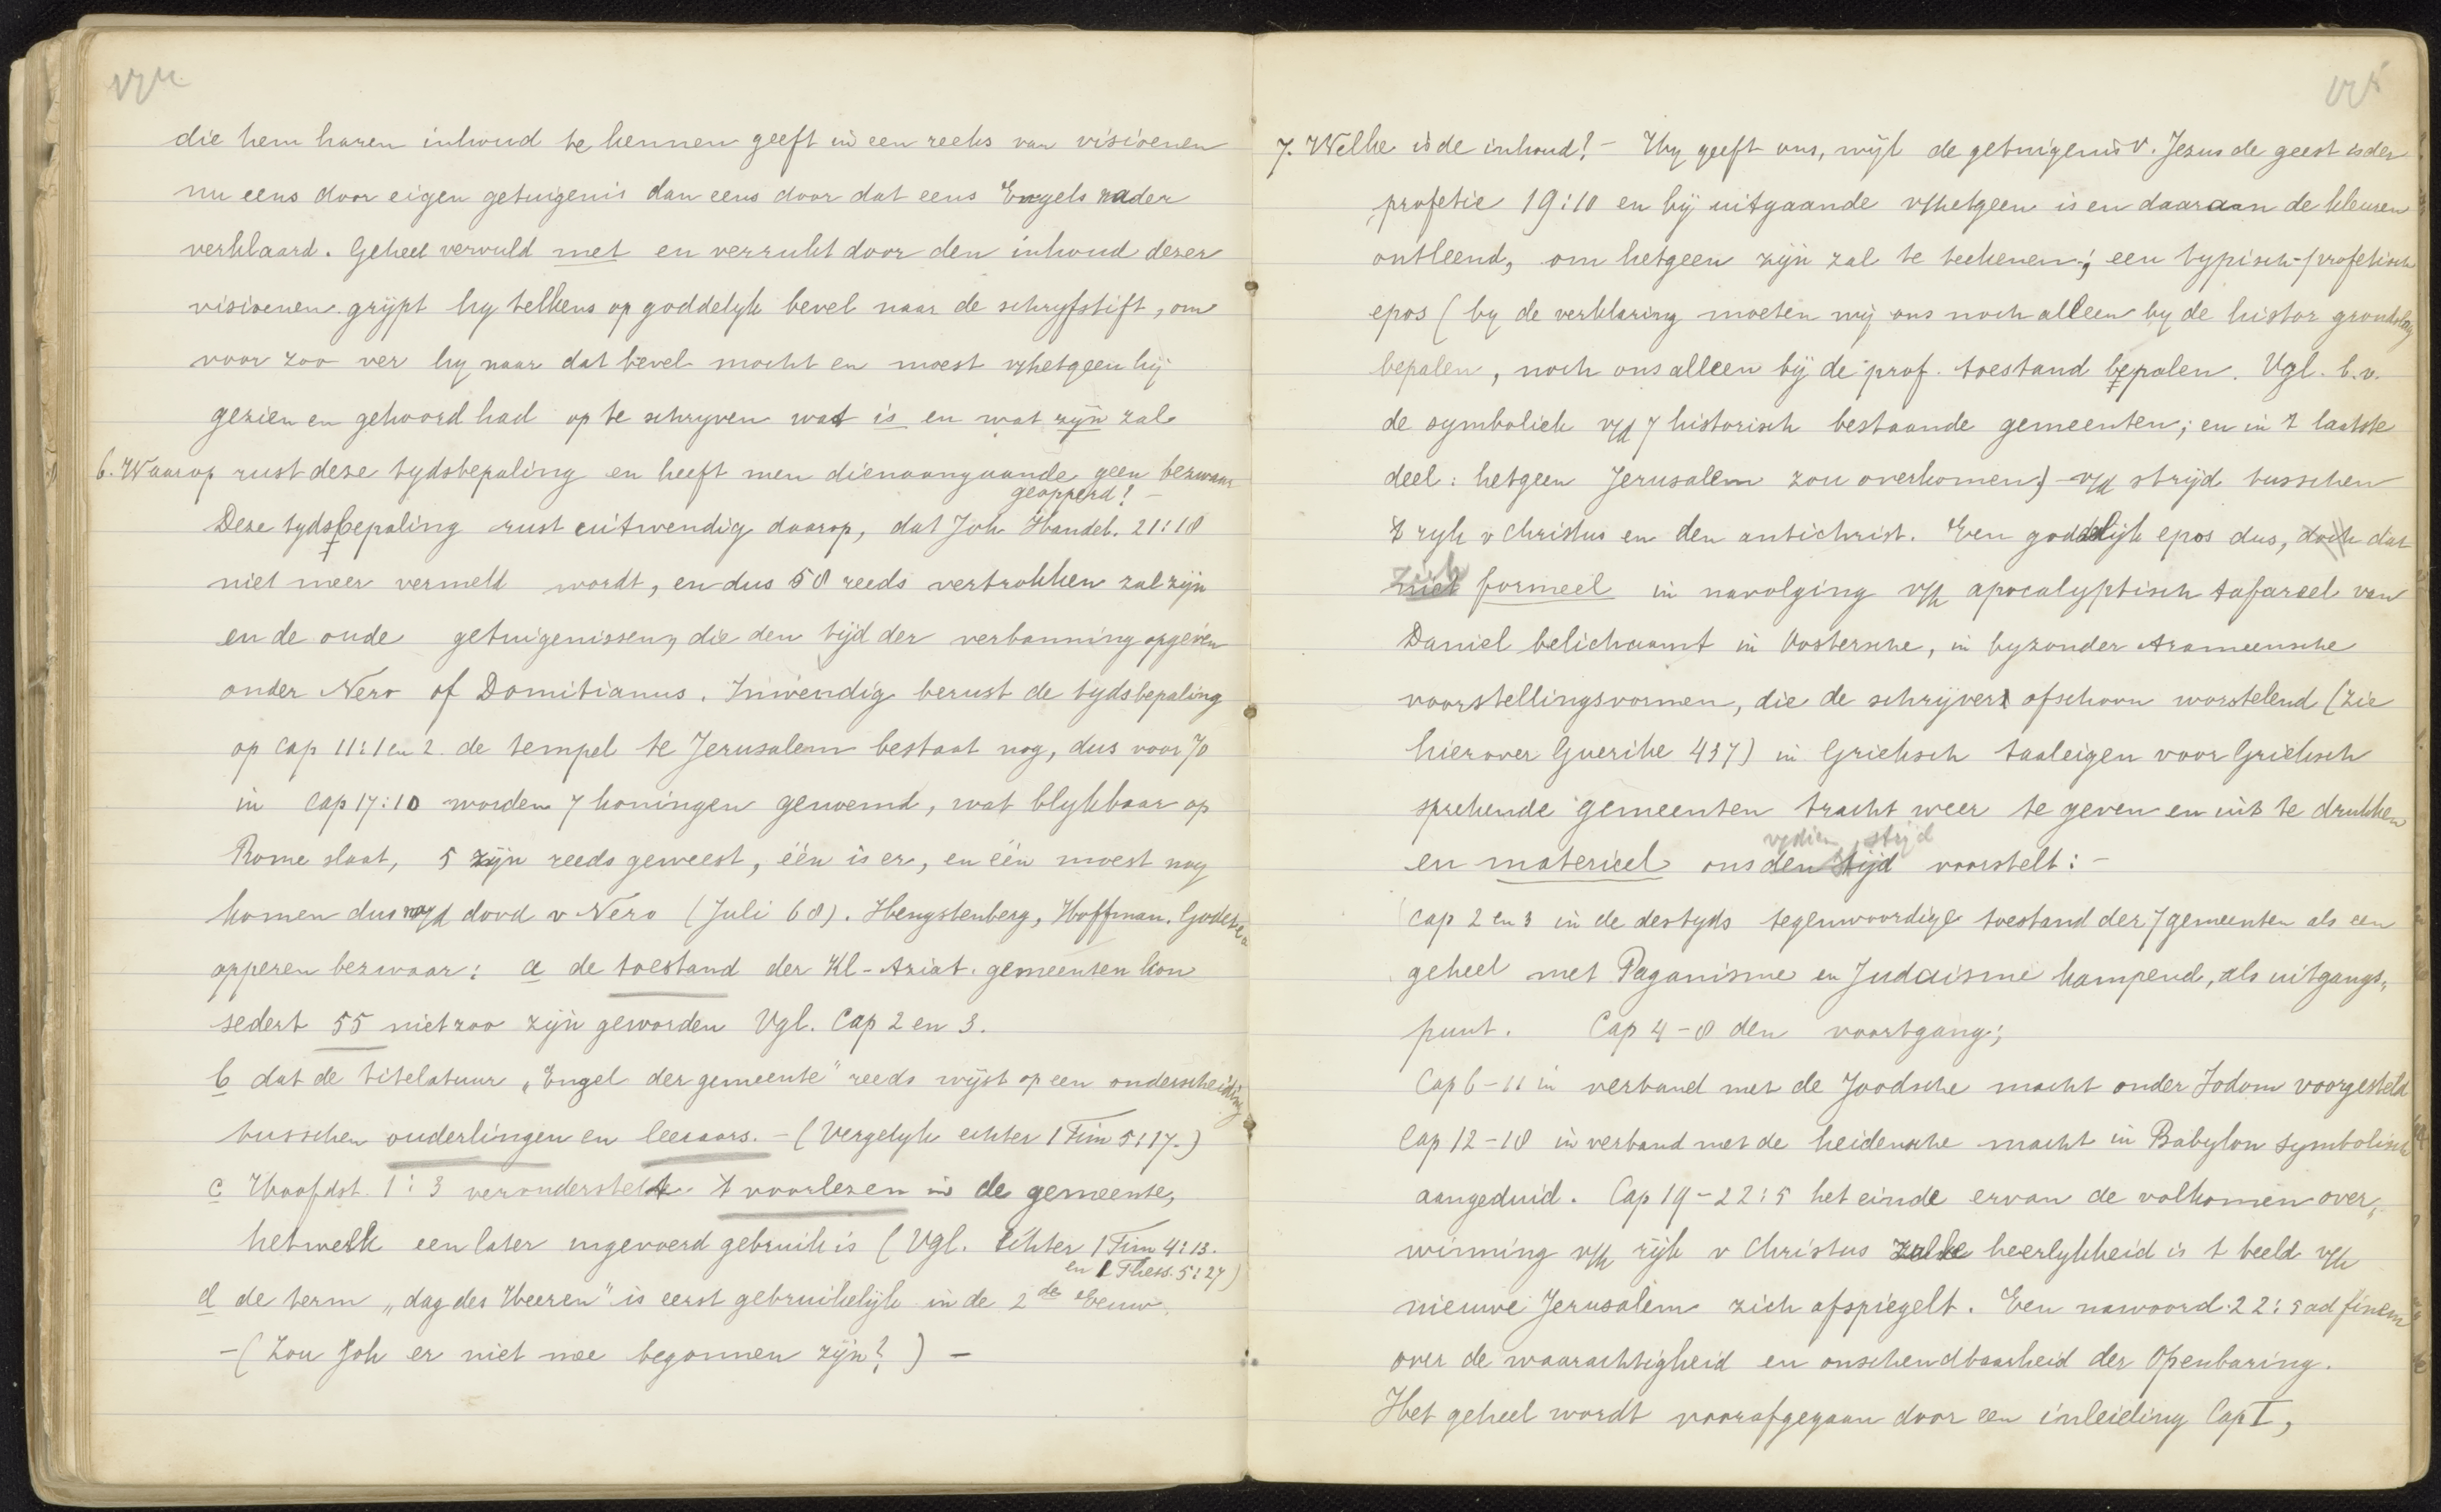 die hem haren inhoud te kennen geeft in een reeks van visioenen
nu eens door eigen getuigenis dan eens door dat eens Engels nader
verklaard. Geheel vervuld met en verrukt door den inhoud dezer
visioenen grijpt hy telkens op goddelyk bevel naar de schryfstift, om
voor zoo ver hy naar dat bevel mocht en moest v/hetgeen hij
gezien en gehoord had op te schryven wat is en wat zyn zal
6. Waarop rust deze tydsbepaling en heeft men dienaangaande geen bezwaar
geopperd? -
Deze tydsbepaling rust uitwendig daarop, dat Joh Handel. 21:18
niet meer vermeld wordt, en dus 58 reeds vertrokken zal zijn
en de oude getuigenissen, die den tijd der verbanning opgeven
onder Nero of Domitianus. Inwendig berust de tydsbepaling
op Cap 11:1 en 2. de tempel te Jerusalem bestaat nog, dus voor 70
in Cap 17:10 worden 7 koningen genoemd, wat blykbaar op
Rome slaat, 5 zijn reeds geweest, één is er, en één moest nog
komen dus na/d dood v Nero (Juli 68). Hengstenberg, Hoffman. Godet e.a
opperen bezwaar: a de toestand der Kl-Aziat. gemeenten kon
sedert 55 niet zoo zijn geworden Vgl. Cap 2 en 3.
b dat de titelatuur „Engel der gemeente" reeds wijst op een onderscheiding
tusschen ouderlingen en leeraars. - (Vergelyk echter 1 Tim 5:17.)
c Hoofdst. 1:3 veronderstelt 't voorlezen in de gemeente,
hetwelk een later ingevoerd gebruik is (Vgl. echter 1 Tim 4:13.
en 1 Thess. 5:27)
d de term „dag des Heeren" is eerst gebruikelijk in de 2de eeuw.
-(Zou Joh er niet mee begonnen zijn?) -
7. Welke is de inhoud? - Hy geeft ons, wijl de getuigenis v. Jezus de geest is der
profetie 19:10 en hij uitgaande v/hetgeen is en daaraan de kleuren
ontleend, om hetgeen zijn zal te teekenen; een typisch-profetisch
epos (by de verklaring moeten wij ons noch alleen by de histor grondslag
bepalen, noch ons alleen bij de prof. toestand bepalen. Vgl. b.v.
de symboliek v/d 7 historisch bestaande gemeenten; en in 't laatste
deel: hetgeen Jerusalem zou overkomen) v/d strijd tusschen
't ryk v Christus en den antichrist. Een goddelijk epos dus, doch dat
zich formeel in navolging v/h apocalyptisch tafareel van
Daniel belichaamt in Oostersche, in byzonder Arameensche
voorstellingsvormen, die de schrijver ofschoon worstelend (zie
hierover Guerike 437) in Grieksch taaleigen voor Grieksch
sprekende gemeenten tracht weer te geven en uit te drukken
v/dien strijd
en materieel ons den tijd voorstelt: -
Cap 2 en 3 in de destyds tegenwoordige toestand der 7 gemeenten als een
geheel met Paganisme en Judaisme kampend, als uitgangs,
punt. Cap 4-8 den voortgang;
Cap 6-11 in verband met de Joodsche macht onder Sodom voorgesteld
Cap 12-18 in verband met de heidensche macht in Babylon symbolisch
aangeduid. Cap 19-22:5 het einde ervan de volkomen over,
winning v/h rijk v Christus heerlykheid is t beeld v/h
nieuwe Jerusalem zich afspiegelt. Een nawoord 22:5 ad finem
over de waarachtigheid en onschendbaarheid der Openbaring.
Het geheel wordt voorafgegaan door een inleiding Cap I,